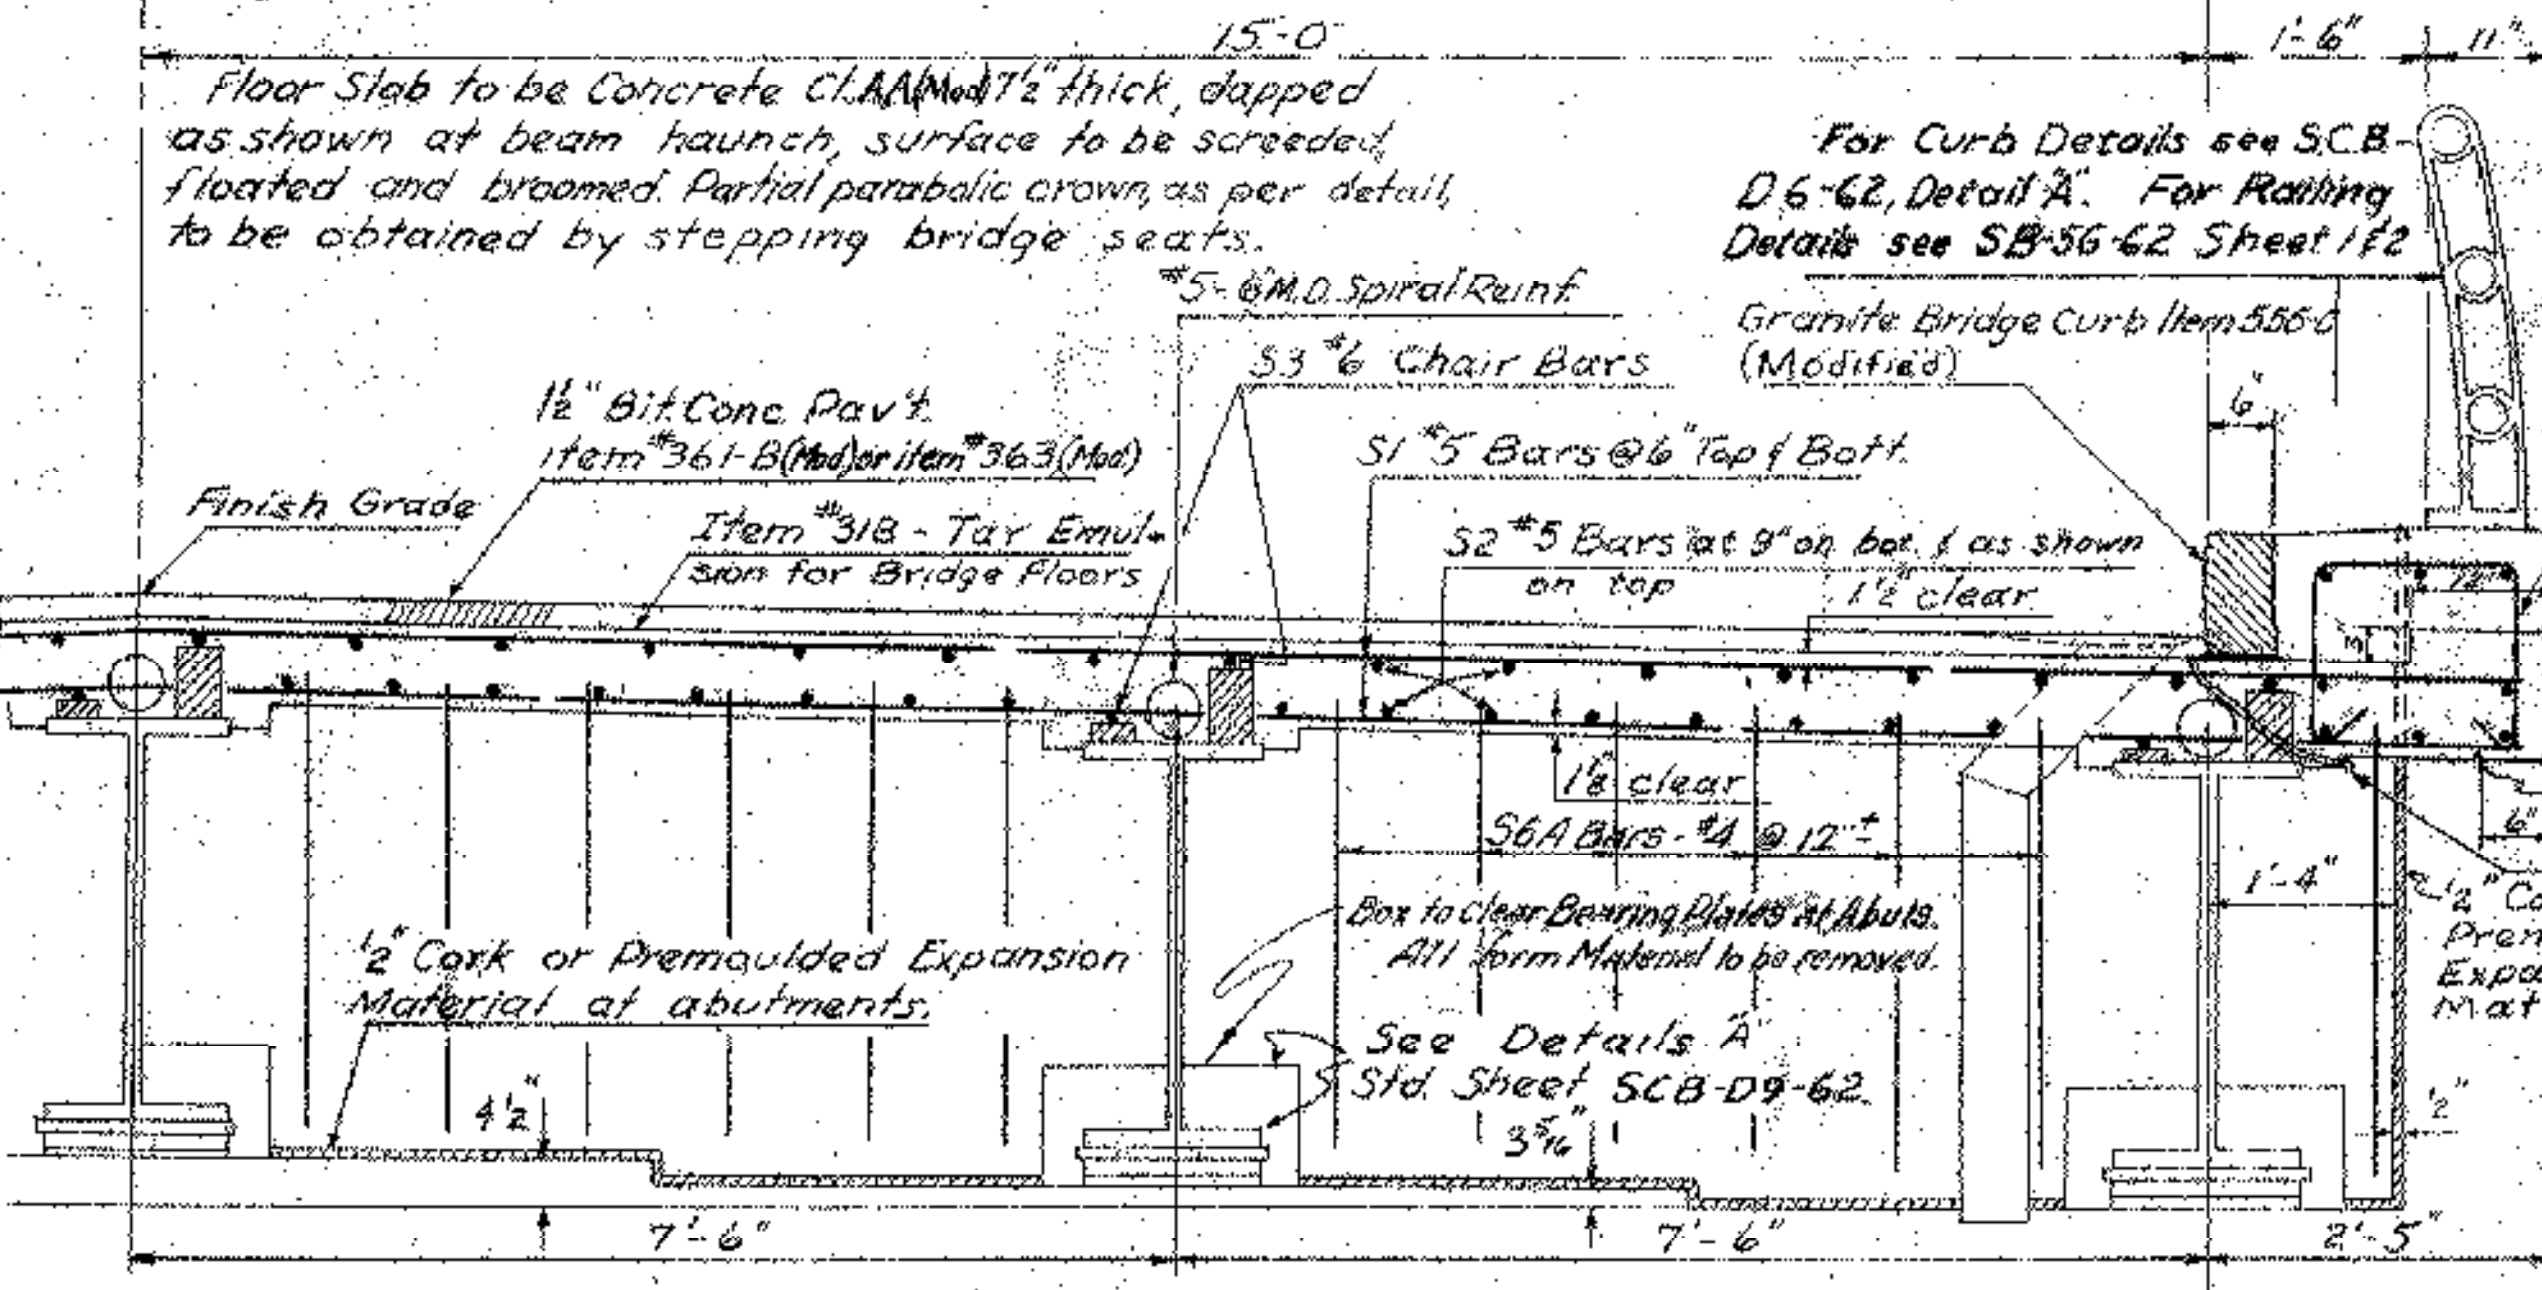 15'-0"
1'-6"
11"
Floor Slab to be Concrete Cl.AA(Mod) 7½" thick, dapped
as shown at beam haunch, surface to be screeded,
floated and broomed. Partial parabolic crown, as per detail,
to be obtained by stepping bridge seats.
For Curb Details see S.C.B.-
D6-62, Detail "A". For Railing
Details see SB-56-62 Sheet 1 & 2
#5-6" M.D. Spiral Reinf.
Granite Bridge Curb Item 556-C
(Modified)
S3 #6 Chair Bars
6"
1½" Bit. Conc. Pav't.
item #361-B(Mod) or item #363(Mod)
S1 #5 Bars @ 6" Top & Bott.
Finish Grade
Item #318 - Tar Emul-
sion for Bridge Floors
S2 #5 Bars at 9" on bot. & as shown
on top
1½" clear
3"
1⅛" clear
S6A Bars - #4 @ 12" ±
6"
1'-4"
Box to clear Bearing Plates at Abuts.
All form Material to be removed.
½" Cork or Premoulded Expansion
Material at abutments.
½" Co
Prem
Expa
Mat
See Details "A"
Std. Sheet SCB-D9-62.
4½"
3 5/16"
½"
7'-6"
7'-6"
2'-5"